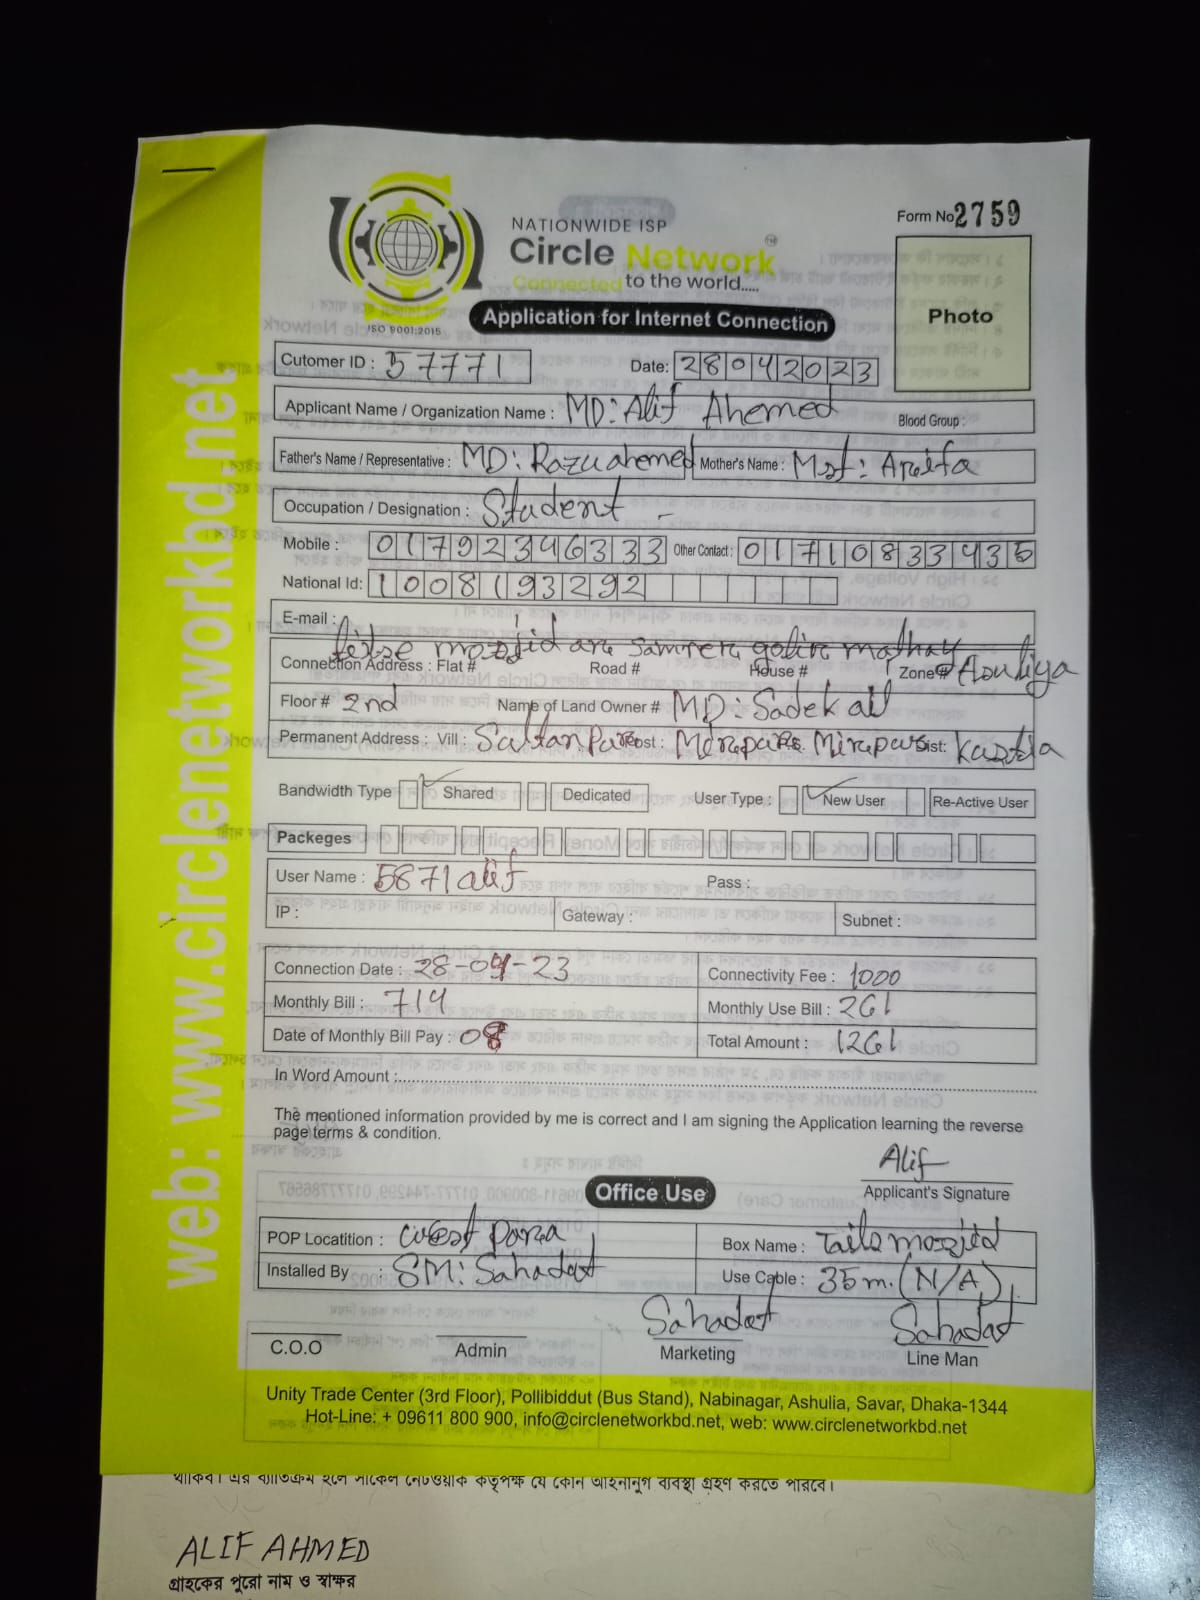 NATIONWIDE ISP
Circle Network TM
Connected to the world.....
ISO 9001:2015
Form No 2759
Photo
Application for Internet Connection
Cutomer ID : 57771 Date: 28042023
Applicant Name / Organization Name : MD: Alif Ahemed Blood Group :
Father's Name / Representative : MD: Razu ahemed Mother's Name : Mst: Arifa
Occupation / Designation : Student -
Mobile : 01792346333 Other Contact : 01710833435
National Id: 1008193292
E-mail :
Connection Address : Flat # Road # House # Zone # Asuliya
Floor # 2nd Name of Land Owner # MD: Sadek ali
Permanent Address : Vill : Sultan Para Post : Mirepara P.S. Mirepur Dist:
Bandwidth Type Shared Dedicated User Type : New User Re-Active User
Packeges
User Name : 5871alif Pass :
IP : Gateway : Subnet :
Connection Date : 28-04-23 Connectivity Fee : 1000
Monthly Bill : 714 Monthly Use Bill : 261
Date of Monthly Bill Pay : 08 Total Amount : 1261
In Word Amount :
The mentioned information provided by me is correct and I am signing the Application learning the reverse
page terms & condition.
Alif
Applicant's Signature
Office Use
POP Locatition : West Para Box Name : Taila mosjid
Installed By : SM: Sahadat Use Cable : 35 m. (N/A)
Sahadat Sahadat
C.O.O Admin Marketing Line Man
Unity Trade Center (3rd Floor), Pollibiddut (Bus Stand), Nabinagar, Ashulia, Savar, Dhaka-1344
Hot-Line: + 09611 800 900, info@circlenetworkbd.net, web: www.circlenetworkbd.net
web: www.circlenetworkbd.net
থাকিব। এর ব্যতিক্রম হলে সার্কেল নেটওয়ার্ক কতৃপক্ষ যে কোন আইনানুগ ব্যবস্থা গ্রহণ করতে পারবে।
ALIF AHMED
গ্রাহকের পুরো নাম ও স্বাক্ষর